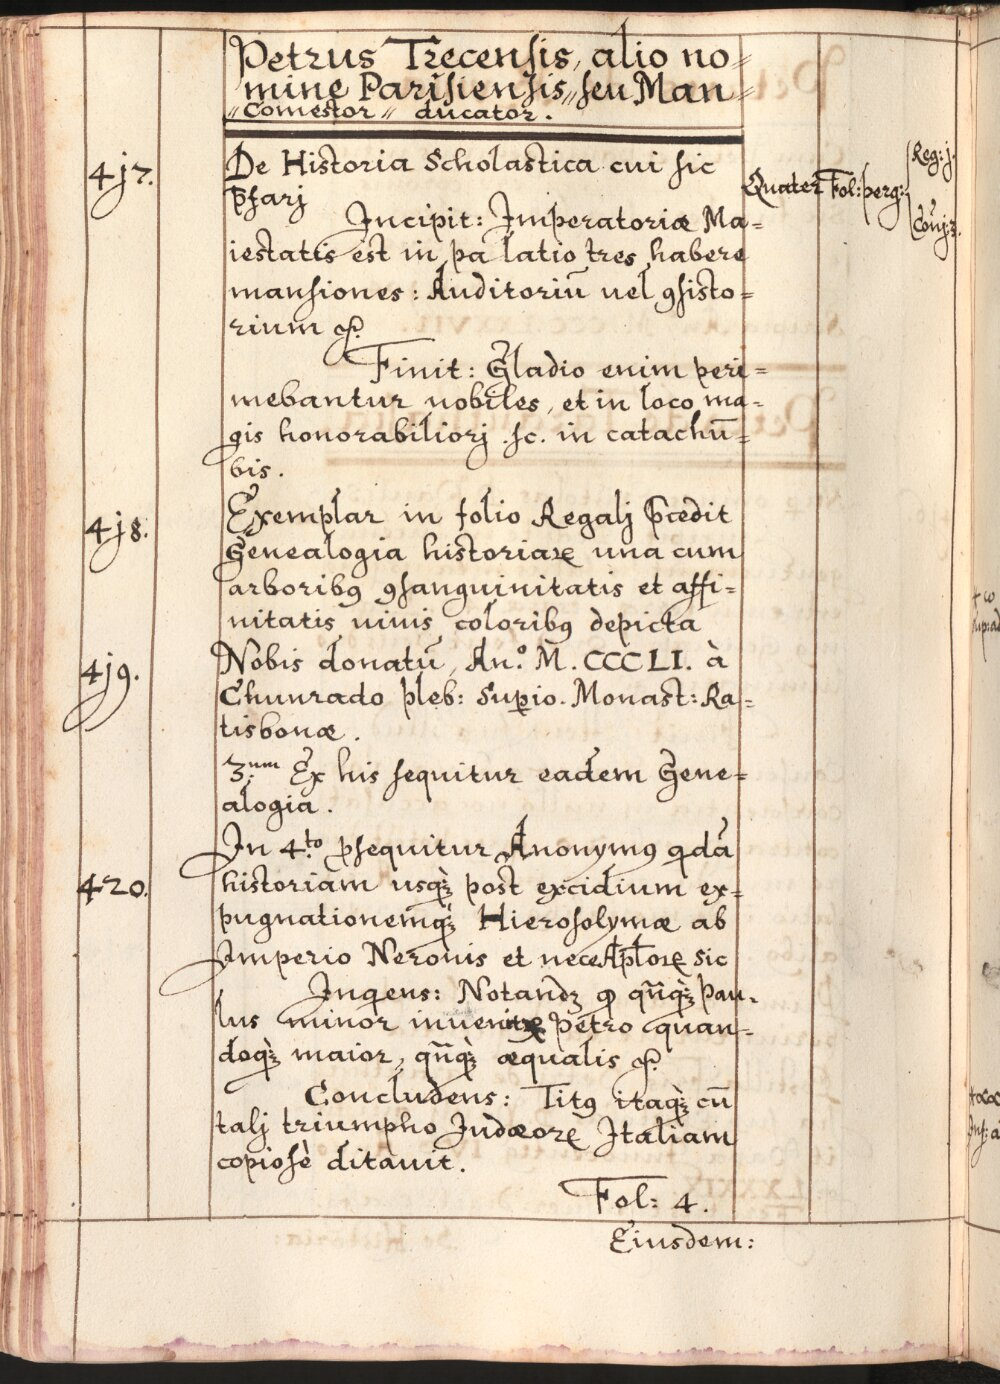 Petrus Trecensis, alio no=
mine Parisiensis, seu Man=
"Comestor" ducator.
4j7.
De Historia Scholastica cui sic
p̄farj
Quater Fol: perg:
Reg: j.
Conj: 3.
Incipit: Imperatoriæ Ma=
iestatis est in palatio tres habere
mansiones: Auditoriū uel ꝯsisto=
rium &.
Finit: Gladio enim peri=
mebantur nobiles, et in loco ma=
gis honorabiliorj .sc. in catachū=
bis.
4j8.
Exemplar in folio Regalj p̄cedit
Genealogia historiaꝝ una cum
arboribꝯ ꝯsanguinitatis et affi=
nitatis uiuis coloribꝯ depicta
4j9.
Nobis donatū, An.º M. CCCLI. à
Chunrado pleb: Supio. Monast: Ra=
tisbonæ.
3.um Ex his sequitur eadem Gene=
alogia.
In 4.to ꝓsequitur Anonymꝯ qdā
420.
historiam usqꝫ post excidium ex=
pugnationemqꝫ Hierosolymæ ab
Imperio Neronis et nece Apl̄oꝝ sic
Inqens: Notandꝫ ꝙ qn̄qꝫ Pau=
lus minor Petro quan=
doqꝫ maior, qn̄qꝫ æqualis &.
Concludens: Titꝯ itaqꝫ cū
talj triumpho Judæoꝝ Italiam
copiosè ditauit.
Fol: 4.
Eiusdem: